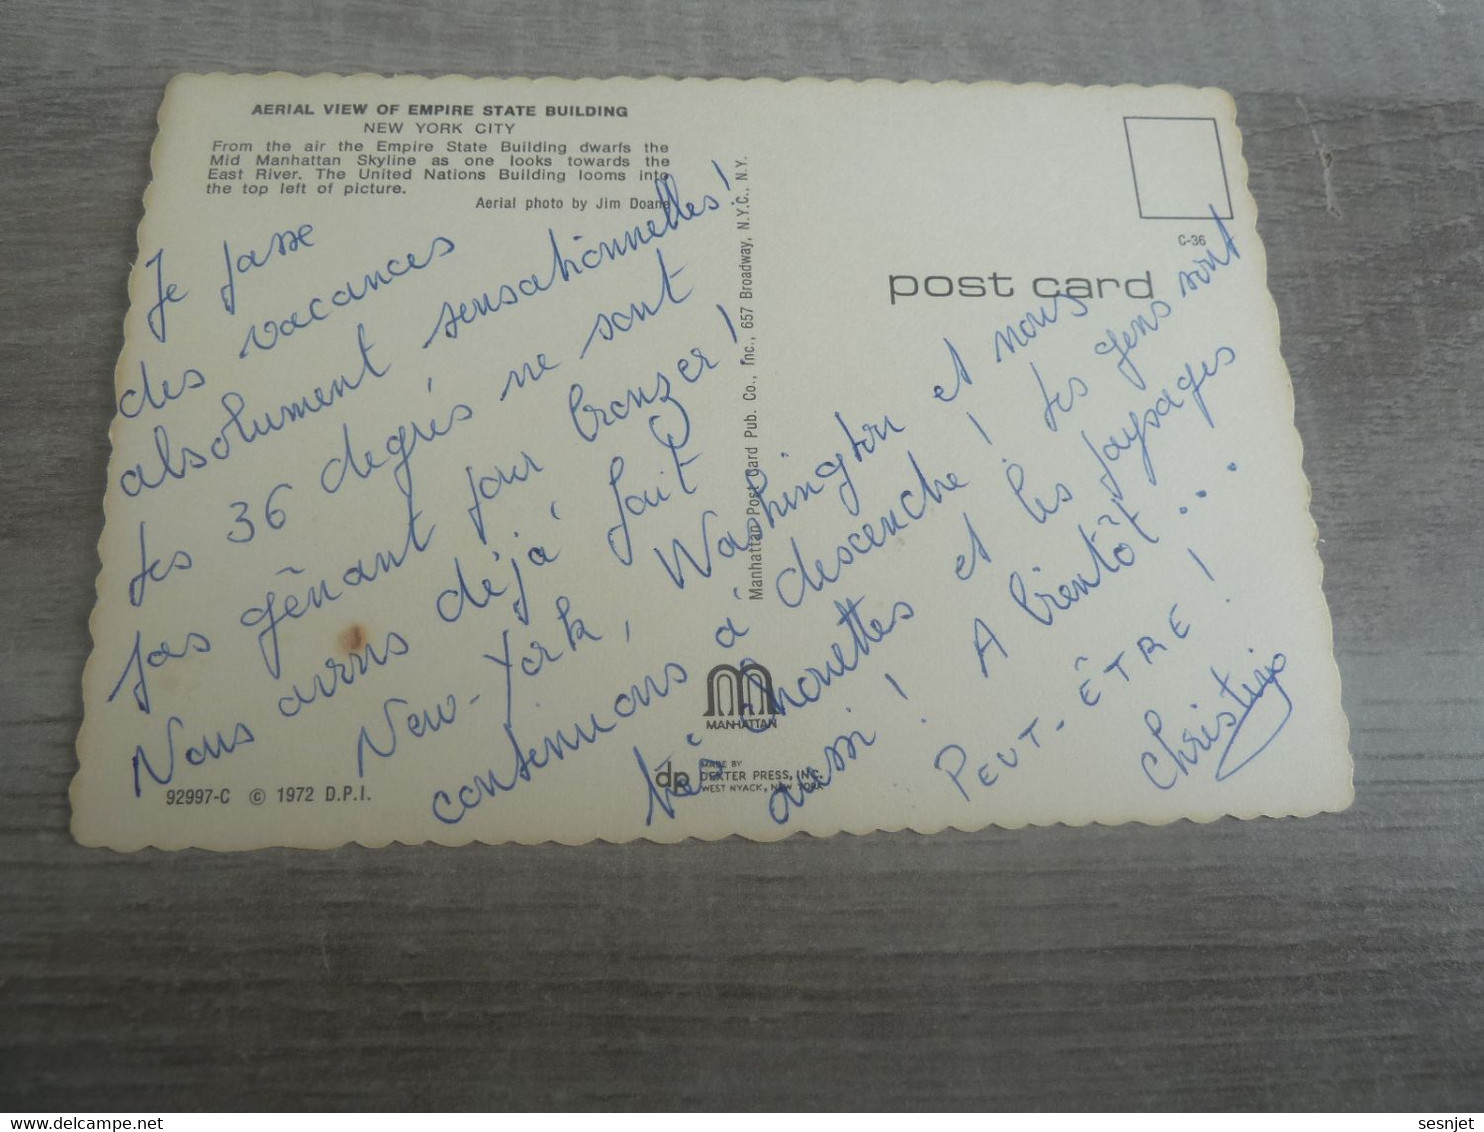 AERIAL VIEW OF EMPIRE STATE BUILDING
NEW YORK CITY
From the air the Empire State Building dwarfs the
Mid Manhattan Skyline as one looks towards the
East River. The United Nations Building looms into
the top left of picture.
Aerial photo by Jim Doane
Je passe
des vacances
absolument sensationnelles!
Les 36 degrés ne sont
pas gênant pour bronzer!
Nous avons déjà fait
New-York, Washington et nous
continuons à descendre! Les gens sont
très chouettes et les paysages
aussi! A bientôt...
PEUT-ÊTRE!
Manhattan Post Card Pub. Co., Inc., 657 Broadway, N.Y.C., N.Y.
C-36
post card
MANHATTAN
dp MADE BY
DEXTER PRESS, INC.
WEST NYACK, NEW YORK
92997-C © 1972 D.P.I.
sesnjet